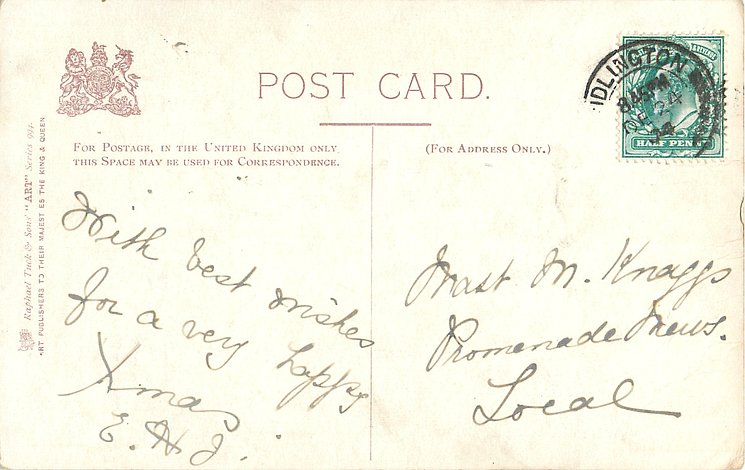 POST CARD.
FOR POSTAGE, IN THE UNITED KINGDOM ONLY
THIS SPACE MAY BE USED FOR CORRESPONDENCE.
(FOR ADDRESS ONLY.)
With best wishes
for a very happy
Xmas
E. H. J.
Mast M. Knaggs
Promenade Mews.
Local
Raphael Tuck & Sons' "ART" Series 994.
ART PUBLISHERS TO THEIR MAJESTIES THE KING & QUEEN
IDLINGTON
8.45 PM
DE 24
HALF PENNY